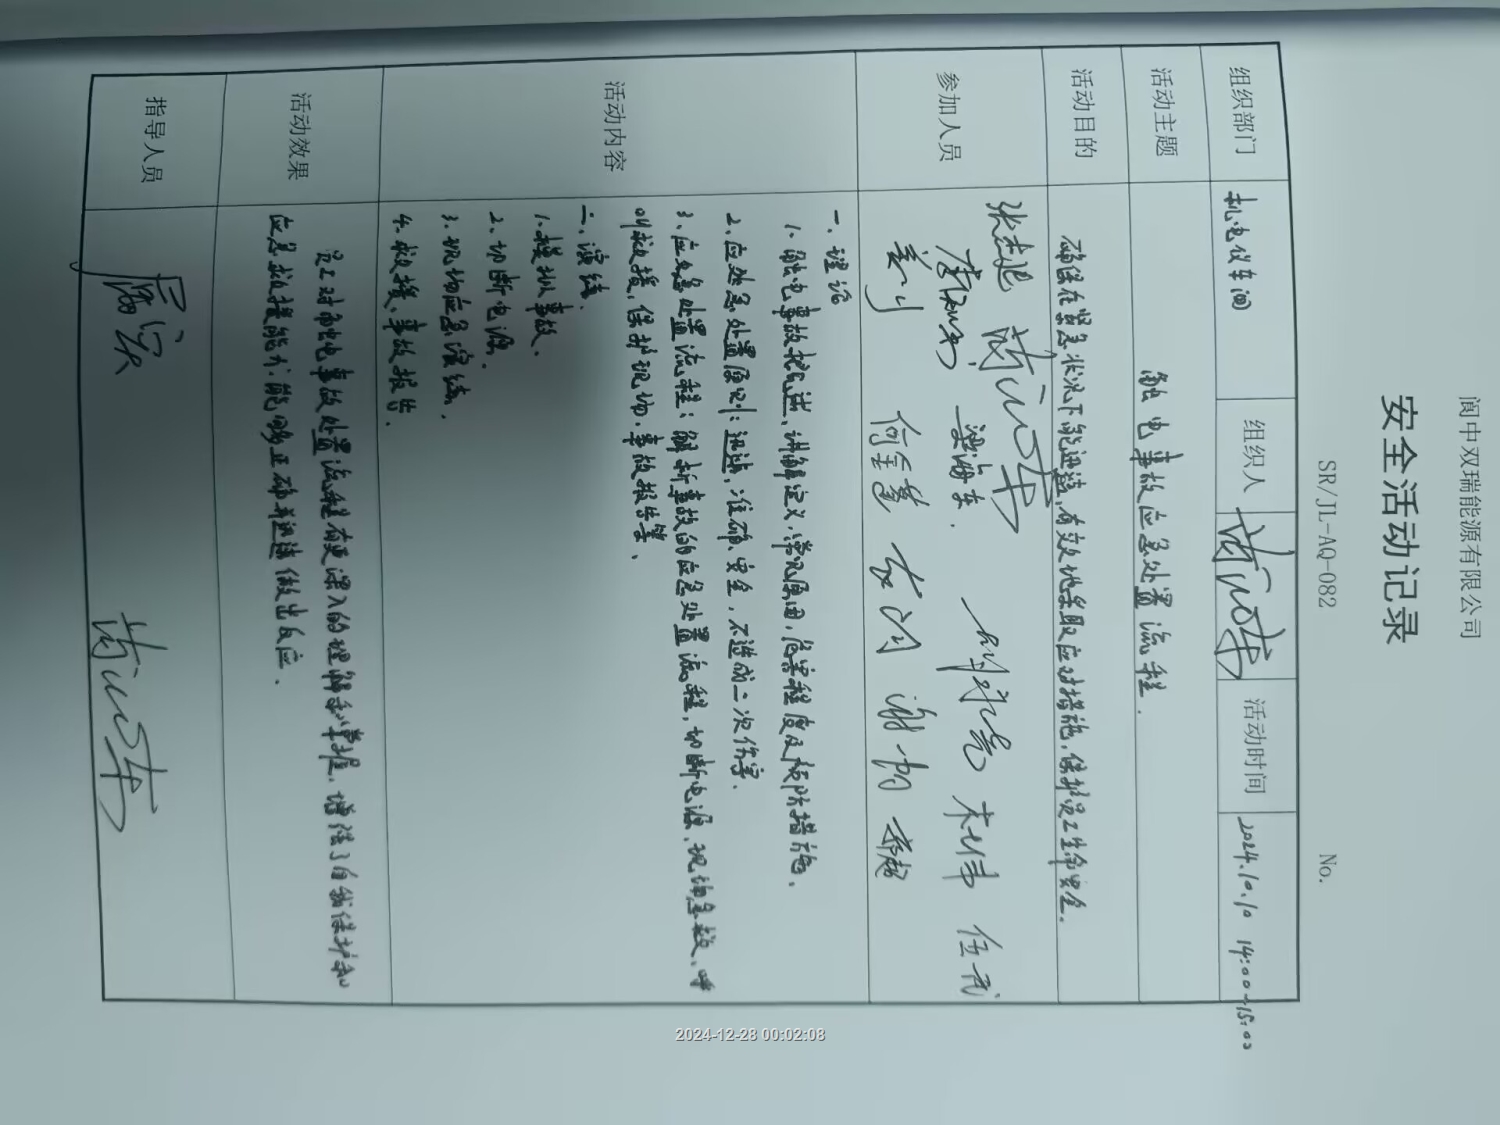 阆中双瑞能源有限公司
安全活动记录
SR/JL-AQ-082 No.
组织部门 机电仪车间 组织人 活动时间 2024.10.10 14:00-15:00
活动主题 触电事故应急处置流程.
活动目的 确保在紧急状况下能迅速,有效地采取应对措施,保护员工生命安全.
参加人员 梁海东.
伍武
何金蔓
活动内容 一、理论
1、触电事故概述、讲解定义,常见原因,危害程度及预防措施.
2、应处急处置原则:迅速,准确、安全,不造成二次伤害.
3、应急处置流程:解析事故的应急处置流程,切断电源、现场急救、呼
叫救援,保护现场,事故报告等、
二、演练.
1.模拟事故、
2、切断电源.
3.现场应急演练.
4.救援、事故报告.
活动效果 员工对触电事故处置流程有更深入的理解和掌握,增强了自我保护和
应急救援能力:能够正确并迅速做出反应.
指导人员
2024-12-28 00:02:08